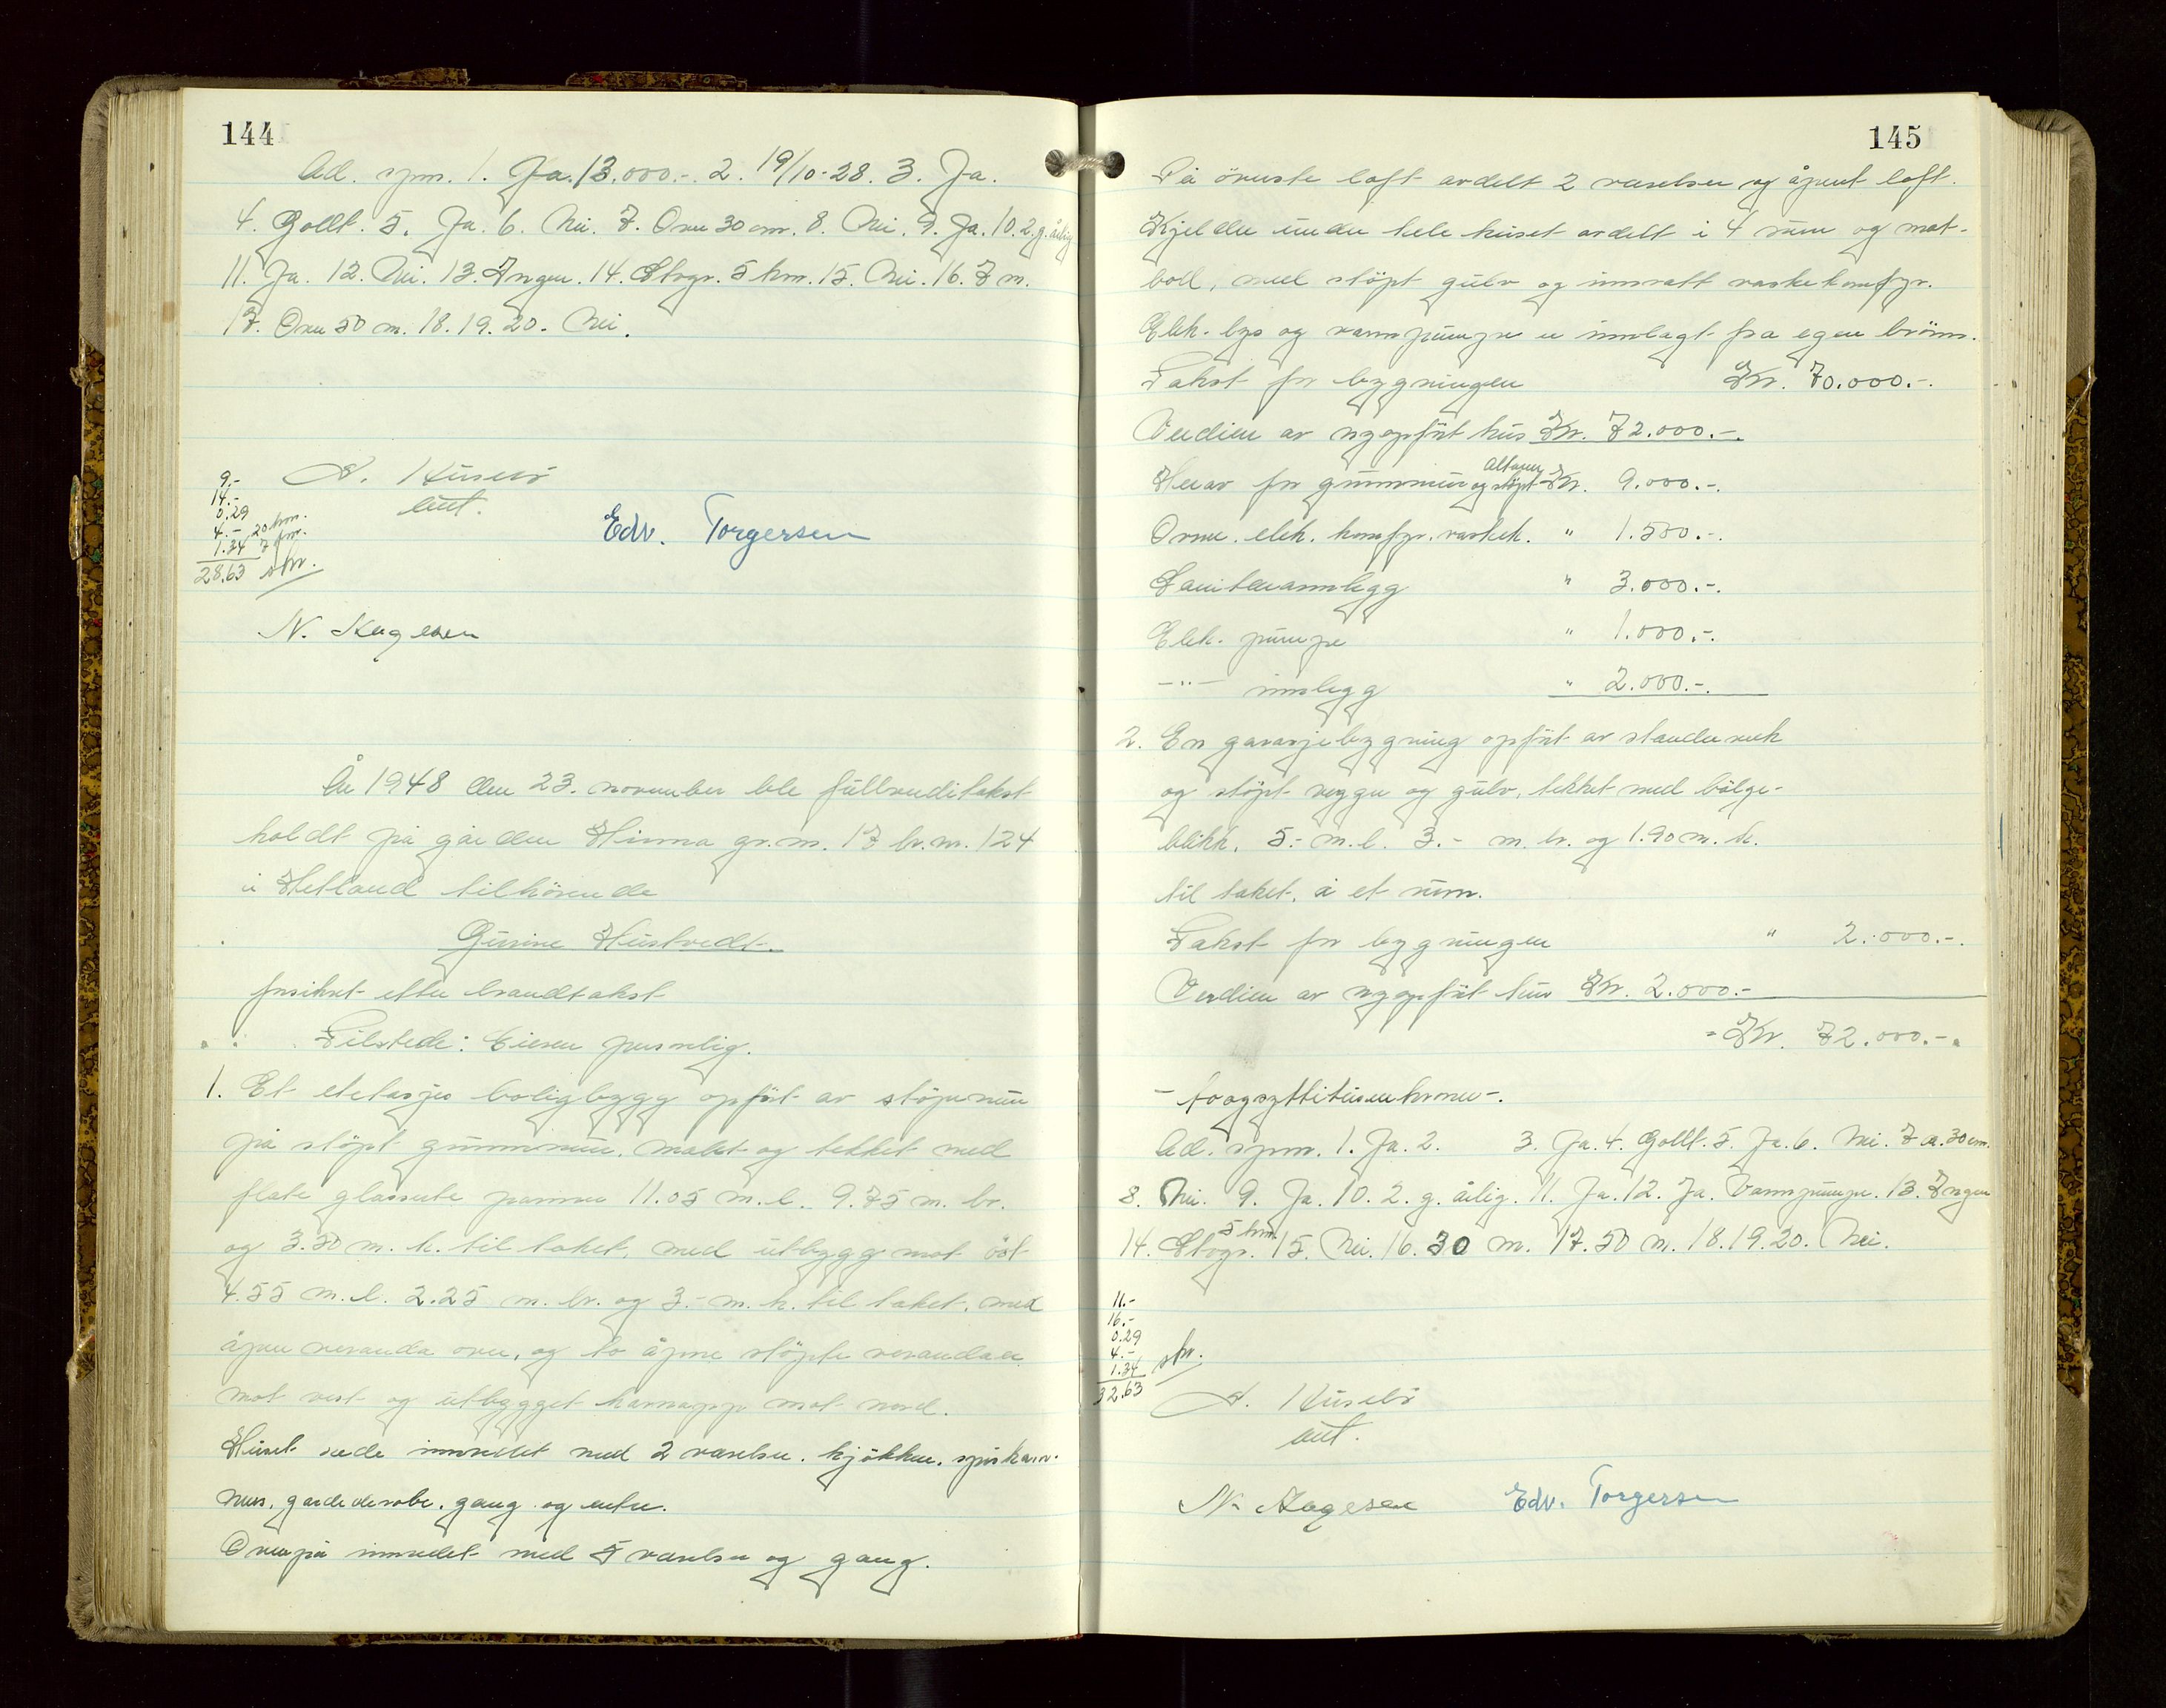 144
Ad. spm. 1. Ja. 13.000.-. 2. 19/10-28. 3. Ja.
4. Gollt. 5. Ja. 6. Nei. 7. Over 30 cm. 8. Nei. 9. Ja. 10. 2. g. årlig
11. Ja. 12. Nei. 13. Ingen. 14. Stvgr. 5 km. 15. Nei. 16. 7 m.
17. Over 50 m. 18. 19. 20. Nei.
9.-
14.-
0.29
4.- 20 km.
1.34 7 fm.
28.63 skr.
A. Husebö
lut.
Edv. Torgersen
N. Aagesen
År 1948 den 23. november ble fullverditakst
holdt på gården Hinna gr. nr. 17 br. nr. 124
i Hetland tilhörende
Gurine Hustvedt.
forsikret etter branntakst
Tilstede: Eieren personlig.
1. Et etetasjes boligbygg opfört av stöperum
på stöpt grunnmur, malet og tekket med
flate glaserte panner 11.05 m. l. 9.75 m. br.
og 3.50 m. h. til taket, med utbygg mot öst
4.55 m. l. 2.25 m. br. og 3.- m. h. til taket, med
åpen veranda over, og to åpne stöpte verandaer
mot vest og utbygget karnapp mot nord.
Huset nede innredet med 2 værelser, kjökken, spiskam-
mer, garderobe, gang og entre.
Ovenpå innredet med 5 værelser og gang.
145
På överste loft avdelt 2 værelser og åpent loft.
Kjeller under hele huset avdelt i 4 rum og mat-
bod, med stöpt gulv og innsatt vaskekomfyr.
Elek. lys og vannpumpe er innlagt fra egen brönn.
Takst for bygningen Kr. 70.000.-.
Verdien av nyopfört hus Kr. 72.000.-.
Herav for grunnmur og stöpt altaner Kr. 9.000.-.
Ovne. elek. komfyr. vaskek. " 1.500.-.
Sanitæranlegg " 3.000.-.
Elek. pumpe " 1.000.-.
-"- innlegg " 2.000.-.
2. En garasjebygning opfört av stenderverk
og stöpt vegger og gulv, tekket med bölge-
blikk, 5.- m. l. 3.- m. br. og 1.90 m. h.
til taket, i et rum.
Takst for bygningen " 2.000.-.
Verdien av nyopfört hus Kr. 2.000.-
= Kr. 72.000.-.
- toogsyttitusenkroner -.
Ad. spm. 1. Ja. 2. 3. Ja. 4. Gollt. 5. Ja. 6. Nei. 7. a. 30 cm.
8. Nei. 9. Ja. 10. 2. g. årlig. 11. Ja. 12. Ja. Vannpumpe. 13. Ingen
14. Stvgr. 5 km. 15. Nei. 16. 30 m. 17. 50 m. 18. 19. 20. Nei.
11.-
16.-
0.29
4.-
1.34 skr.
32.63
A. Husebö
lut.
N. Aagesen Edv. Torgersen